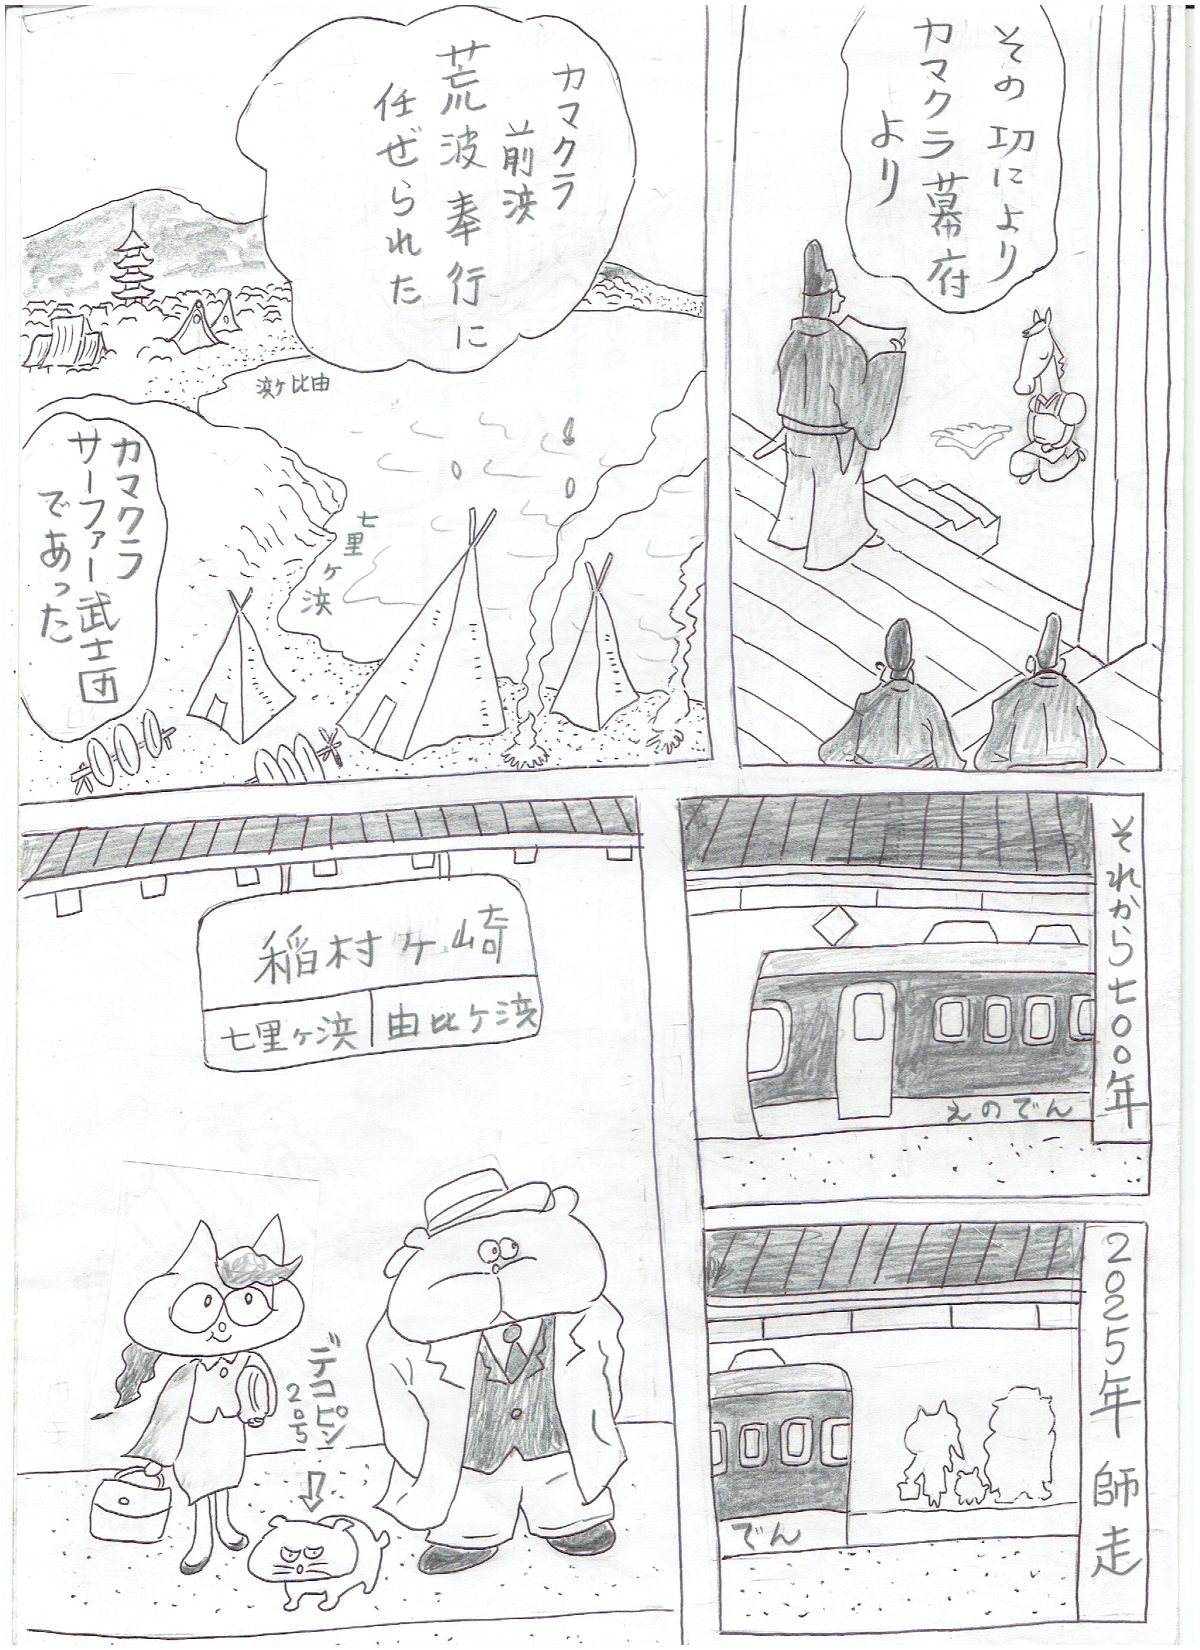 その功により
カマクラ幕府
より
カマクラ
前浜
荒波奉行に
任ぜられた
由比ヶ浜
七里ヶ浜
カマクラ
サーファー武士団
であった
それから七〇〇年
えのでん
2025年 師走
でん
稲村ヶ崎
七里ヶ浜
由比ヶ浜
デコピン
2号